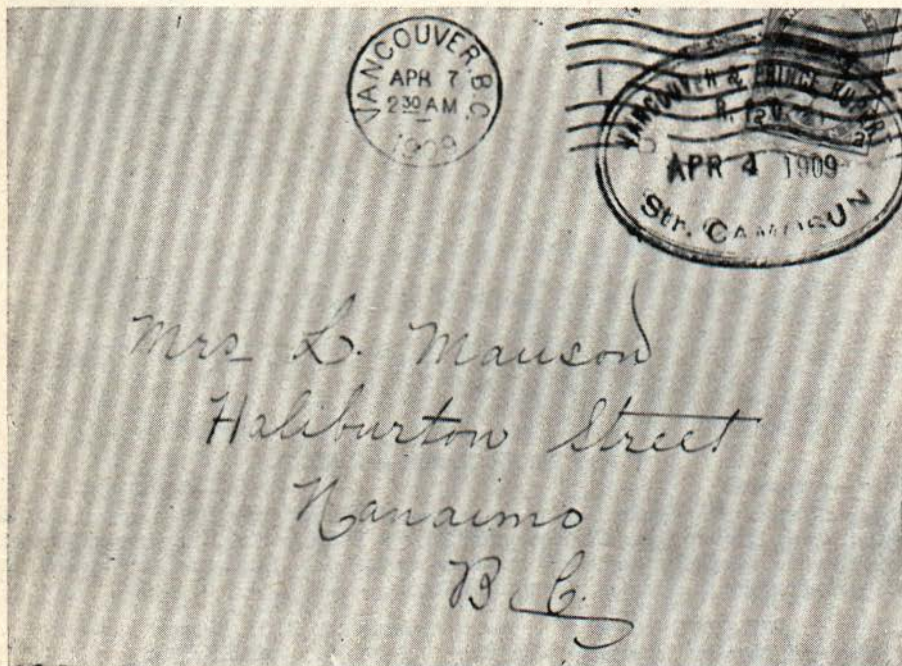 VANCOUVER. B.C.
APR 7
2 30 AM
1909
VANCOUVER & PRINCE RUPERT
APR 4 1909
Str. CAMOSUN
Mrs L. Manson
Haliburton Street
Nanaimo
B.C.